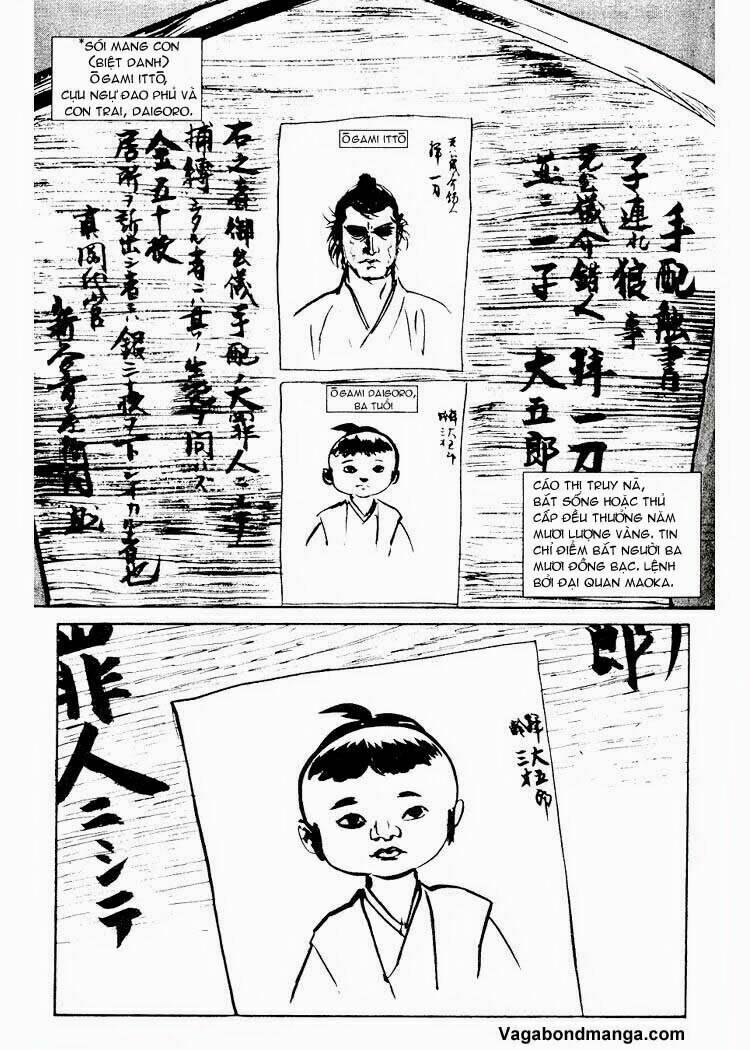 *SÓI MANG CON
(BIỆT DANH)
ŌGAMI ITTŌ,
CỰU NGỰ ĐAO PHỦ VÀ
CON TRAI, DAIGORO.
手配触書
子連れ狼事
元公儀介錯人
拝一刀
並ニ一子
大五郎
ŌGAMI ITTŌ
拝一刀
ŌGAMI DAIGORO,
BA TUỔI
拝大五郎
齢三才
右之者御公儀手配ノ大罪人ニシテ
捕縛シタル者ニハ其ノ生死ヲ問ハズ
金五十枚
居所ヲ訴出シ者ニハ銀三十枚ヲ下シオカル者也
真岡代官
CÁO THỊ TRUY NÃ,
BẮT SỐNG HOẶC THỦ
CẤP ĐỀU THƯỞNG NĂM
MƯƠI LƯỢNG VÀNG. TIN
CHỈ ĐIỂM BẮT NGƯỜI BA
MƯƠI ĐỒNG BẠC. LỆNH
BỞI ĐẠI QUAN MAOKA.
郎
拝大五郎
齢三才
罪人ニシテ
Vagabondmanga.com